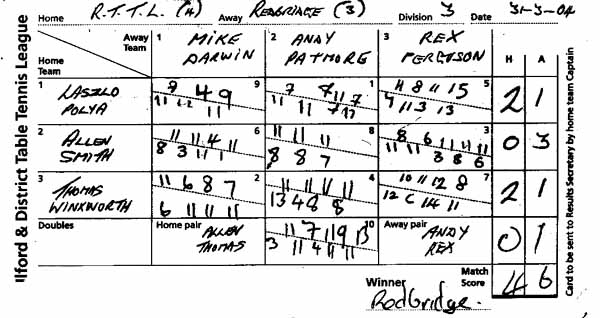 Ilford & District Table Tennis League
Home R.T.T.L. (4) Away REDBRIDGE (3) Division 3 Date 31-3-04
Away Team
Home Team
1 MIKE DARWIN
2 ANDY PATMORE
3 REX FERGUSON
H A
1 LASZLO POLYA
9 7 4 9
11 11
1 7 7 11 7
11 11
5 11 8 11 15
11 13 13
2 1
2 ALLEN SMITH
6 11 11 4 11
8 3 11
8 11 11 11
8 8 7
3 8 6 11 11 11
11 11 3 8 6
0 3
3 THOMAS WINKWORTH
2 11 6 8 7
6 11 11 11
4 11 11 11 11
13 4 8 8
7 10 11 12 8
12 14 11
2 1
Doubles
Home pair ALLEN THOMAS
10 11 7 11 9 13
3 11 4 11 11
Away pair ANDY REX
0 1
Winner Redbridge.
Match Score 4 6
Card to be sent to Results Secretary by home team Captain